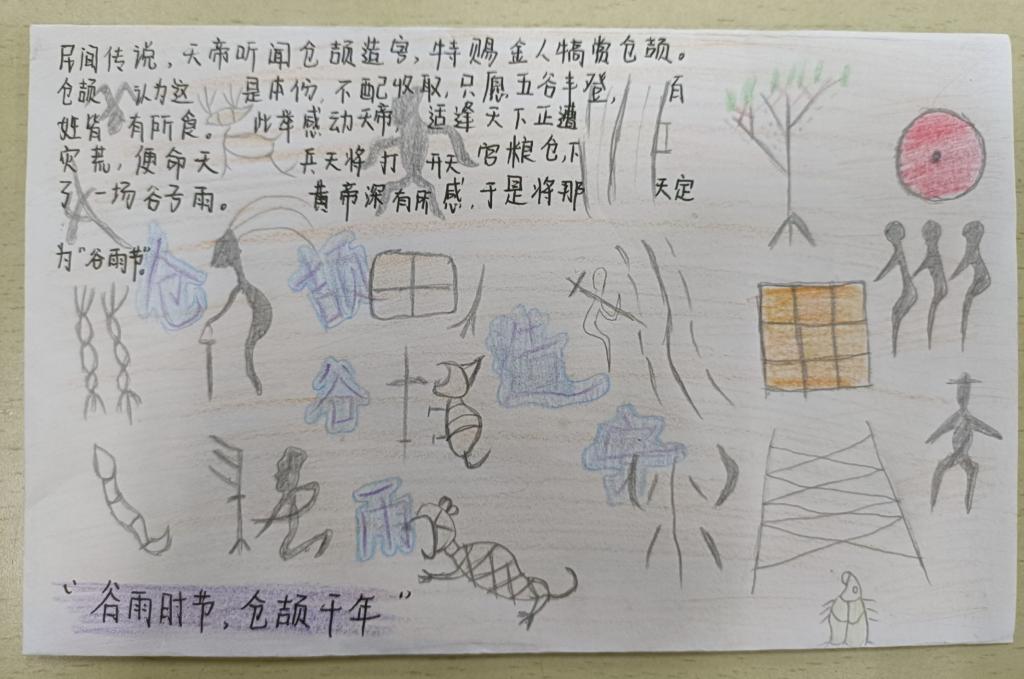 民间传说，天帝听闻仓颉造字，特赐金人犒赏仓颉。
仓颉认为这 是本份，不配收取，只愿五谷丰登，百
姓皆有所食。 此举感动天帝， 适逢天下正遭
灾荒，便命天 兵天将打 开天 宫粮仓，下
了一场谷子雨。 黄帝深有所感，于是将那 天定
为“谷雨节”。
仓 颉 造 字
谷 雨
“谷雨时节，仓颉千年”